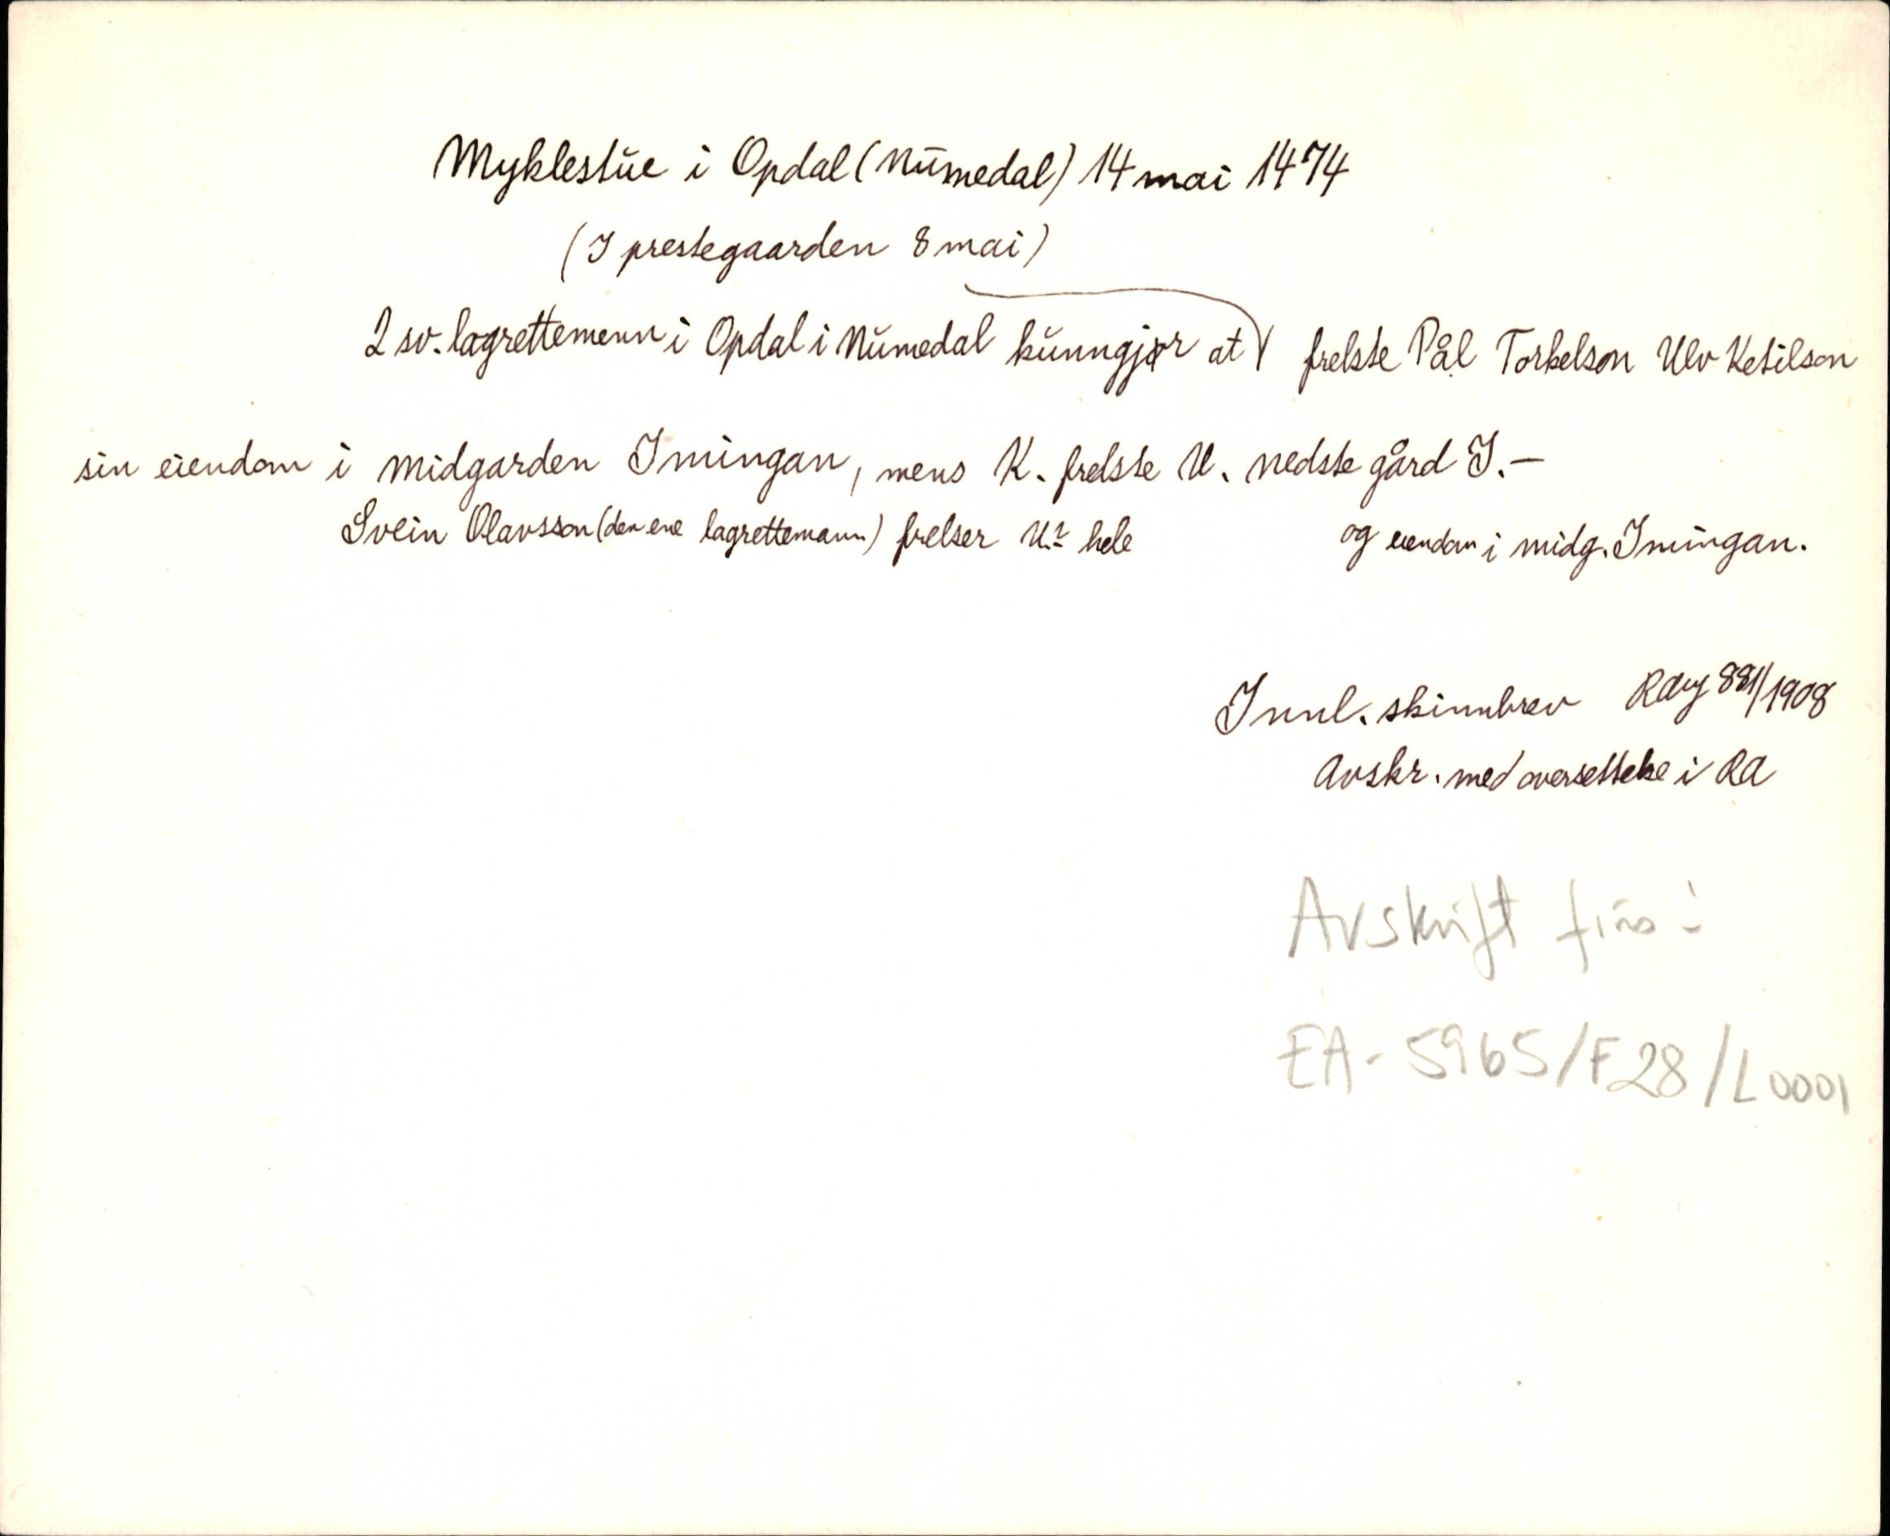 Myklestue i Opdal (Numedal) 14 mai 1474
(I prestegaarden 8 mai)
2 sv. lagrettemenn i Opdal i Numedal kunngjør at frelste Pål Torkelson Ulv Ketilson
sin eiendom i midgarden Imingan, mens K. frelste U. nedste gård I. —
Svein Olavsson (den ene lagrettemann) frelser U. hele og eiendom i midg. Imingan.
Innl. skinnbrev RA 881/1908
Avskr. med oversettelse i RA
Avskrift fins i
EA-5965/F28/L0001